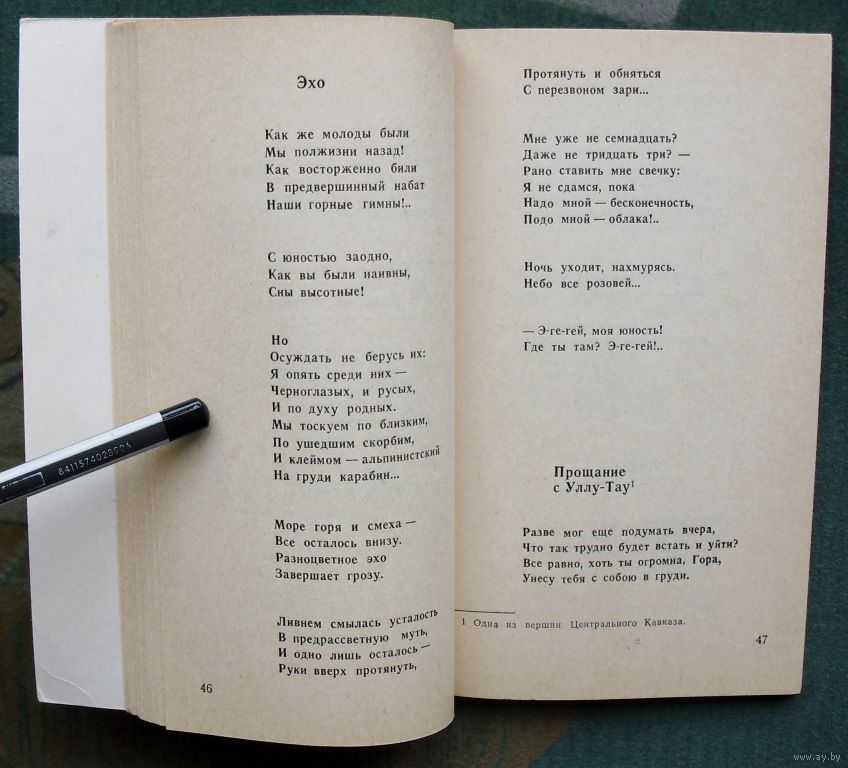 Эхо
Как же молоды были
Мы полжизни назад!
Как восторженно били
В предвершинный набат
Наши горные гимны!..
С юностью заодно,
Как вы были наивны,
Сны высотные!
Но
Осуждать не берусь их:
Я опять среди них —
Черноглазых, и русых,
И по духу родных.
Мы тоскуем по близким,
По ушедшим скорбим,
И клеймом — альпинистский
На груди карабин...
Море горя и смеха —
Все осталось внизу.
Разноцветное эхо
Завершает грозу.
Ливнем смылась усталость
В предрассветную муть,
И одно лишь осталось —
Руки вверх протянуть,
46
8411574023006
Протянуть и обняться
С перезвоном зари...
Мне уже не семнадцать?
Даже не тридцать три? —
Рано ставить мне свечку:
Я не сдамся, пока
Надо мной — бесконечность,
Подо мной — облака!..
Ночь уходит, нахмурясь.
Небо все розовей...
— Э-ге-гей, моя юность!
Где ты там? Э-ге-гей!..
Прощание
с Уллу-Тау¹
Разве мог еще подумать вчера,
Что так трудно будет встать и уйти?
Все равно, хоть ты огромна, Гора,
Унесу тебя с собою в груди.
1 Одна из вершин Центрального Кавказа.
47
www.ay.by